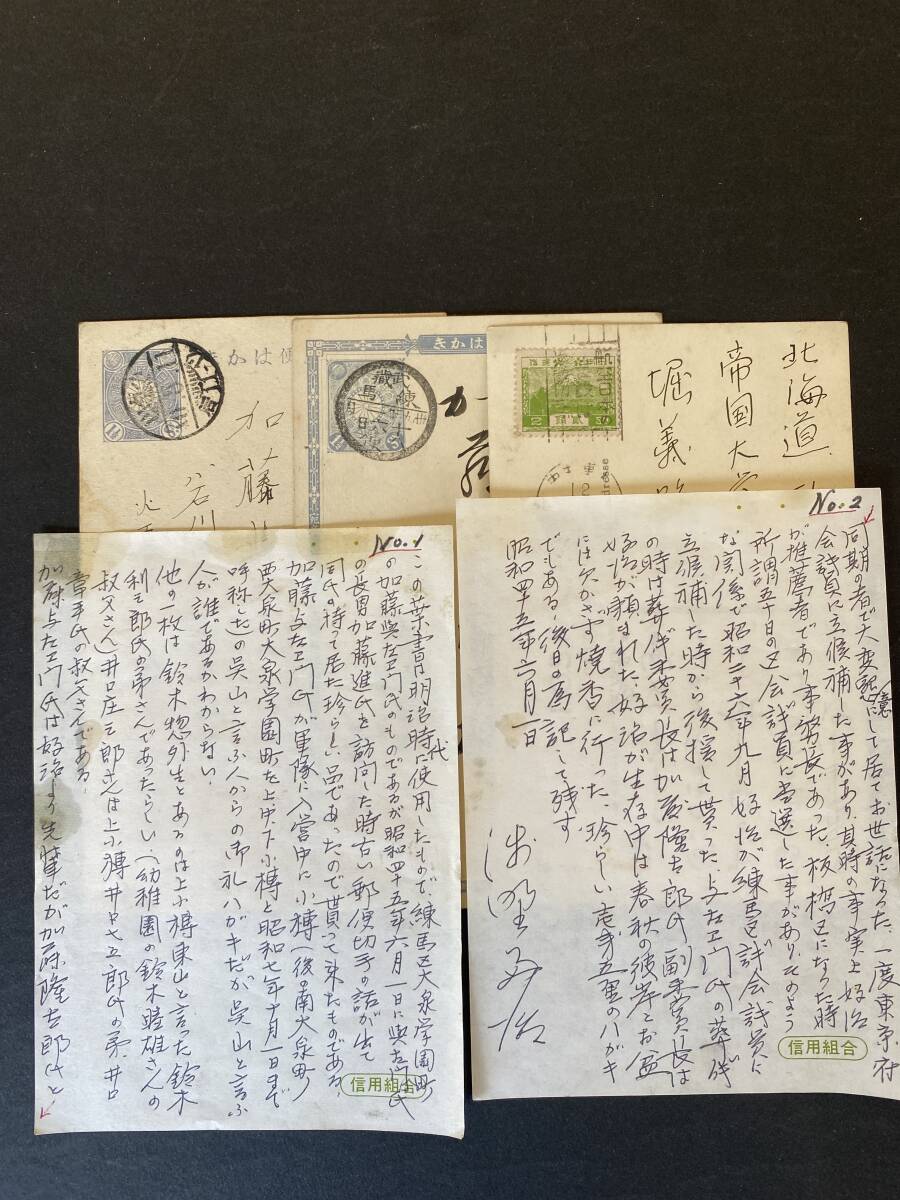 きかは便郵
加藤
谷川
きかは
武蔵
練馬
か
藤
北海道
帝国大学
堀義
No.1
この葉書明治時代に使用したもので、練馬区大泉学園町
の加藤與左エ門氏のものであるが昭和四十五年六月一日に與左エ門氏
の長男加藤進氏を訪問した時古い郵便切手の話が出て
同氏の持って居た珍らしい品であったので貰って来たものである
加藤与左エ門氏が軍隊に入営中に小榑(後の南大泉町
西大泉町大泉学園町を上中下小榑と昭和七年十月一日まで
呼称した)の呉山と言ふ人からの御礼ハガキだが呉山と言ふ
人が誰であるかわからない。
他の一枚は鈴木惣外生とあるのは上小榑東山と言った鈴木
利三郎氏の弟さんであったらしい(幼稚園の鈴木睦雄さんの
叔父さん)井口庄三郎光は上小榑井口七五郎氏の弟、井口
章平氏の叔父さんである。
加藤与左エ門氏は好治より先輩だが加藤隆吉郎氏と
信用組合
No.2
同期の者で大変懇意にして居てお世話になった、一度東京府
会議員に立候補した事があり、其時の事実上好治
が推薦者であり事務長であった、板橋区になった時
所謂五十日の区会議員に当選した事がありそのよう
な関係で昭和二十六年九月好治が練馬区議会議員に
立候補した時から後援して貰った、与左エ門氏の葬儀
の時は葬儀委員長は加藤隆吉郎氏副委員長は
好治が願まれた、好治が生存中は春秋の彼岸とお盆
には欠かさず焼香に行った、珍らしい壱銭五厘のハガキ
でもある、後日の為記して残す
昭和四十五年六月一日
信用組合